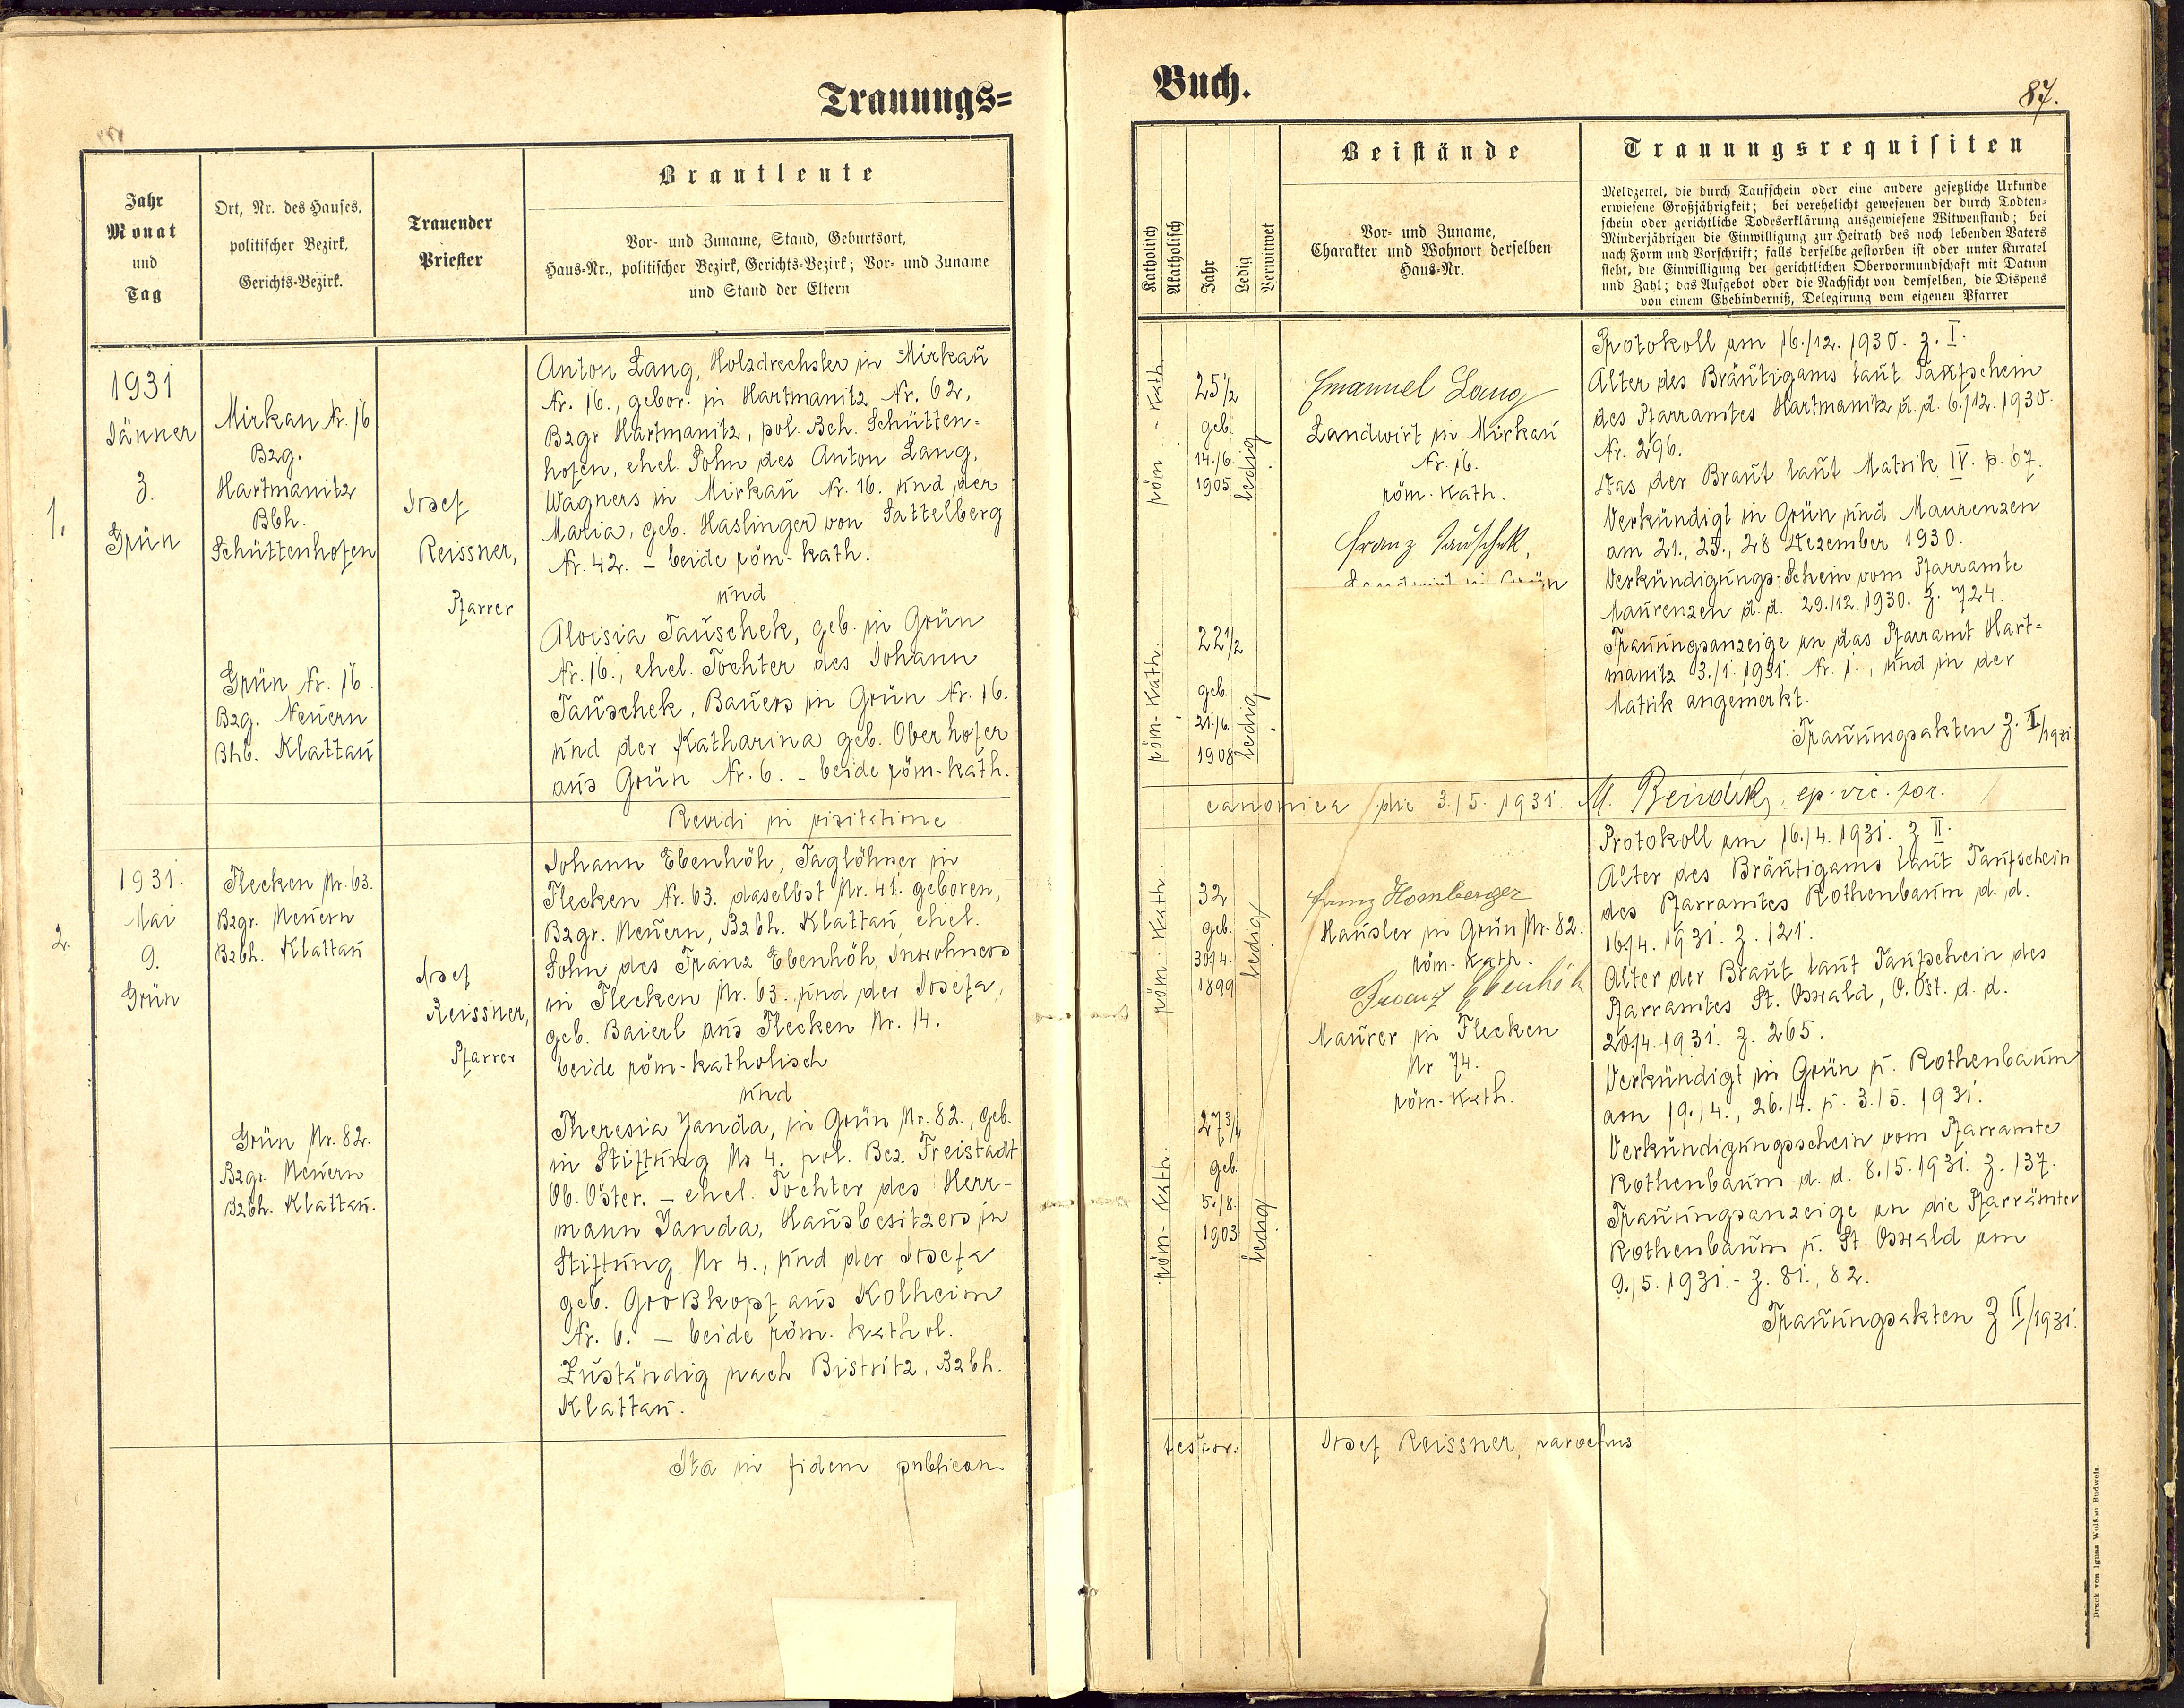 Trauungs=
Jahr
Monat
und
Tag
Ort, Nr. des Hauses,
politischer Bezirk,
Gerichts-Bezirk.
Trauender
Priester
Brautleute
Vor- und Zuname, Stand, Geburtsort,
Haus-Nr., politischer Bezirk, Gerichts-Bezirk; Vor- und Zuname
und Stand der Eltern
1.
1931
Jänner
3.
Grün
Mirkau Nr. 16
Bzg.
Hartmanitz
Bbh.
Schüttenhofen
Josef
Reissner,
Pfarrer
Anton Lang, Holzdrechsler in Mirkau
Nr. 16., gebor. in Hartmanitz Nr. 62,
Bzgr Hartmanitz, pol. Bch. Schütten=
hofen, ehel. Sohn des Anton Lang,
Wagners in Mirkau Nr. 16. und der
Maria, geb. Haslinger von Sattelberg
Nr. 42. – beide röm-kath.
und
Grün Nr. 16.
Bzg. Neuern
Bhb. Klattau
Aloisia Tauschek, geb. in Grün
Nr. 16., ehel. Tochter des Johann
Tauschek, Bauers in Grün Nr. 16.
und der Katharina geb. Oberhofer
aus Grün Nr. 6. – beide röm-kath.
Revidi in visitatione
2.
1931.
Mai
9.
Grün
Flecken Nr. 63.
Bzgr. Neuern
Bzbh. Klattau
Josef
Reissner,
Pfarrer
Johann Ebenhöh, Taglöhner in
Flecken Nr. 63. daselbst Nr. 41. geboren,
Bzgr. Neuern, Bzbh. Klattau, ehel.
Sohn des Franz Ebenhöh, Inwohners
in Flecken Nr. 63. und der Josefa,
geb. Baierl aus Flecken Nr. 14.
beide röm-katholisch
und
Grün Nr. 82.
Bzgr. Neuern
Bzbh. Klattau.
Theresia Janda, in Grün Nr. 82., geb.
in Stiftung Nr 4. pol. Bez. Freistadt
Ob. Öster. – ehel. Tochter des Herr-
mann Janda, Hausbesitzers in
Stiftung Nr 4., und der Josefa
geb. Großkopf aus Kolheim
Nr. 6. – beide röm. kathol.
Zuständig nach Bistritz, Bzbh.
Klattau.
Ita in fidem publicam
Buch.
87.
Katholisch
Akatholisch
Jahr
Ledig
Verwitwet
Beistände
Vor- und Zuname,
Charakter und Wohnort derselben
Haus-Nr.
Trauungsrequisiten
Meldzettel, die durch Taufschein oder eine andere gesetzliche Urkunde
erwiesene Großjährigkeit; bei verehelicht gewesenen der durch Todten-
schein oder gerichtliche Todeserklärung ausgewiesene Witwenstand; bei
Minderjährigen die Einwilligung zur Heirath des noch lebenden Vaters
nach Form und Vorschrift; falls derselbe gestorben ist oder unter Kuratel
steht, die Einwilligung der gerichtlichen Obervormundschaft mit Datum
und Zahl; das Aufgebot oder die Nachsicht von demselben, die Dispens
von einem Ehebinderniß, Delegirung vom eigenen Pfarrer
röm - kath.
25 1/2
geb.
14./6.
1905
ledig
Emanuel Lang
Landwirt in Mirkau
Nr. 16.
röm. kath.
Franz Tauschek,
Landwirt in Grün
röm- kath.
22 1/2
geb.
21./6.
1908
ledig
Protokoll am 16./12. 1930. Z. I.
Alter des Bräutigams laut Taufschein
des Pfarramtes Hartmanitz d. d. 6./12. 1930.
Nr. 296.
Das der Braut laut Matrik IV. p. 67.
Verkündigt in Grün und Maurenzen
am 21., 25., 28 Dezember 1930.
Verkündigungs-Schein vom Pfarramte
Maurenzen d. d. 29./12. 1930. Z. 724.
Trauungsanzeige an das Pfarramt Hart=
manitz 3./1. 1931. Nr. 1., und in der
Matrik angemerkt.
Trauungsakten Z. I/1931.
canonica die 3./5. 1931. M. Bendik, ep. vic. for.
röm- kath.
32
geb.
30/4.
1899
ledig
Franz Homberger
Häusler in Grün Nr. 82.
röm-kath.
Franz Ebenhöh
Maurer in Flecken
Nr 74.
röm-kath.
röm- kath.
27 3/4
geb.
5./8.
1903
ledig
Protokoll am 16./4. 1931. Z II.
Alter des Bräutigams laut Taufschein
des Pfarramtes Rothenbaum d. d.
16/4. 1931. Z. 121.
Alter der Braut laut Taufschein des
Pfarramtes St. Oswald, O.Öst. d. d.
20/4. 1931. Z. 265.
Verkündigt in Grün u. Rothenbaum
am 19./4., 26./4. u. 3./5. 1931.
Verkündigungsschein vom Pfarramte
Rothenbaum d. d. 8./5. 1931. Z. 137.
Trauungsanzeige an die Pfarrämter
Rothenbaum u. St. Oswald am
9./5. 1931. – Z. 81., 82.
Trauungsakten Z II/1931.
testor:
Josef Reissner, parochus
Druck von Ignaz Wolf in Budweis.